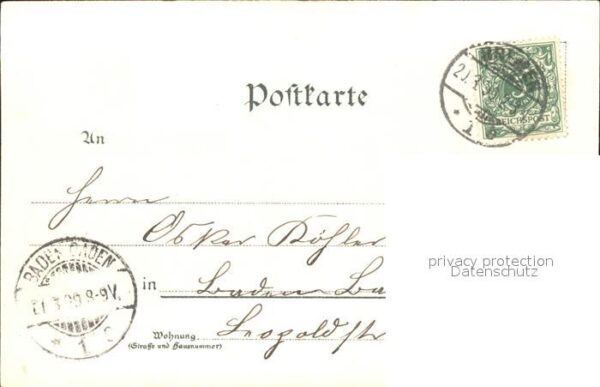 Postkarte
An
Herrn
Oskar Köhler
in Baden Ba
Wohnung Leopoldstr
(Straße und Hausnummer)
BREMEN
1
REICHSPOST
BADEN-BADEN
21.3.99.8-9V.
* 1
privacy protection
Datenschutz